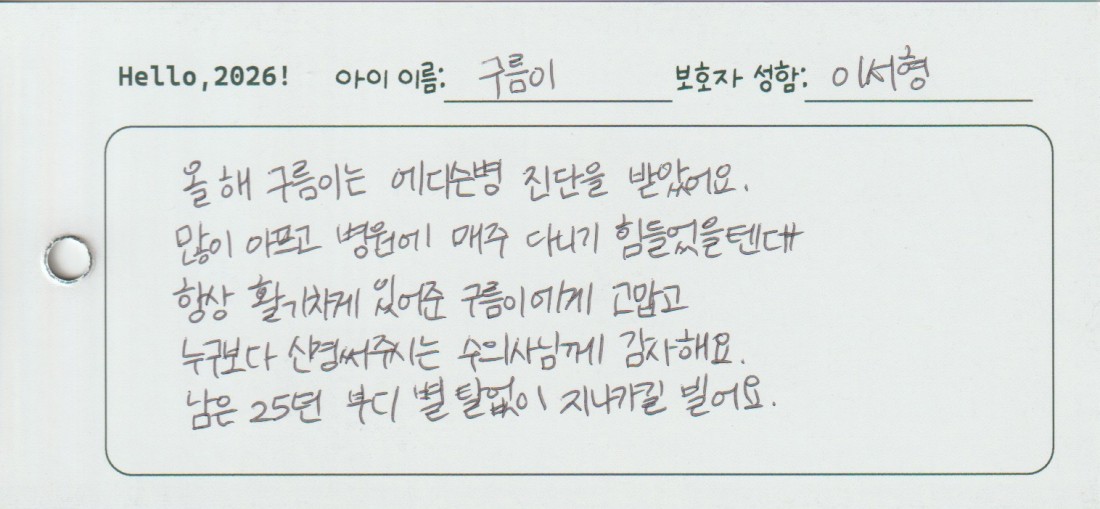 Hello,2026! 아이 이름: 구름이 보호자 성함: 이서형
올 해 구름이는 에디슨병 진단을 받았어요.
많이 아프고 병원에 매주 다니기 힘들었을텐데
항상 활기차게 있어준 구름이에게 고맙고
누구보다 신경써주시는 수의사님께 감사해요.
남은 25년 부디 별 탈없이 지나가길 빌어요.